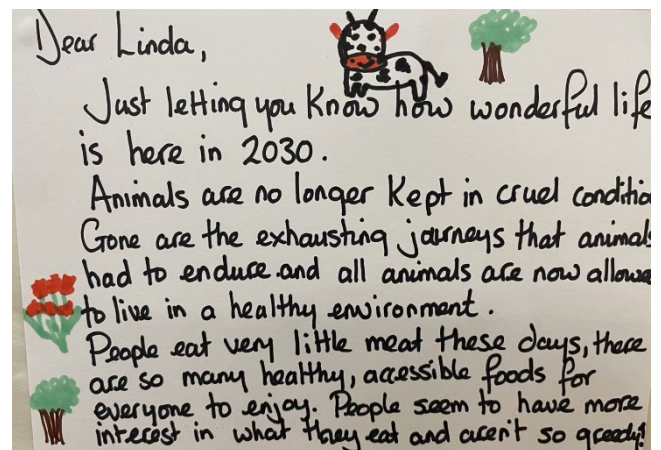 Dear Linda,
Just letting you know how wonderful life
is here in 2030.
Animals are no longer kept in cruel conditio
Gone are the exhausting journeys that animals
had to endure and all animals are now allowe
to live in a healthy environment.
People eat very little meat these days, there
are so many healthy, accessible foods for
everyone to enjoy. People seem to have more
interest in what they eat and aren't so greedy!